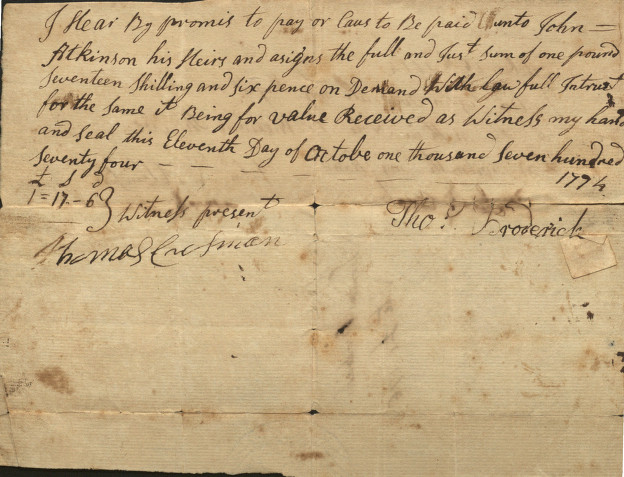 I Hear By promis to pay or Caus to Be paid unto John =
Atkinson his Heirs and asigns the full and Just sum of one pound
Seventeen Shilling and six pence on Demand With law full Intrust
for the same it Being for value Received as Witness my hand
and seal this Eleventh Day of Octobe one thousand Seven hundred
Seventy four — — — — — — 1774
£ S d
1=17-6} Witness present
Thoˢ. Broderick
Thomas